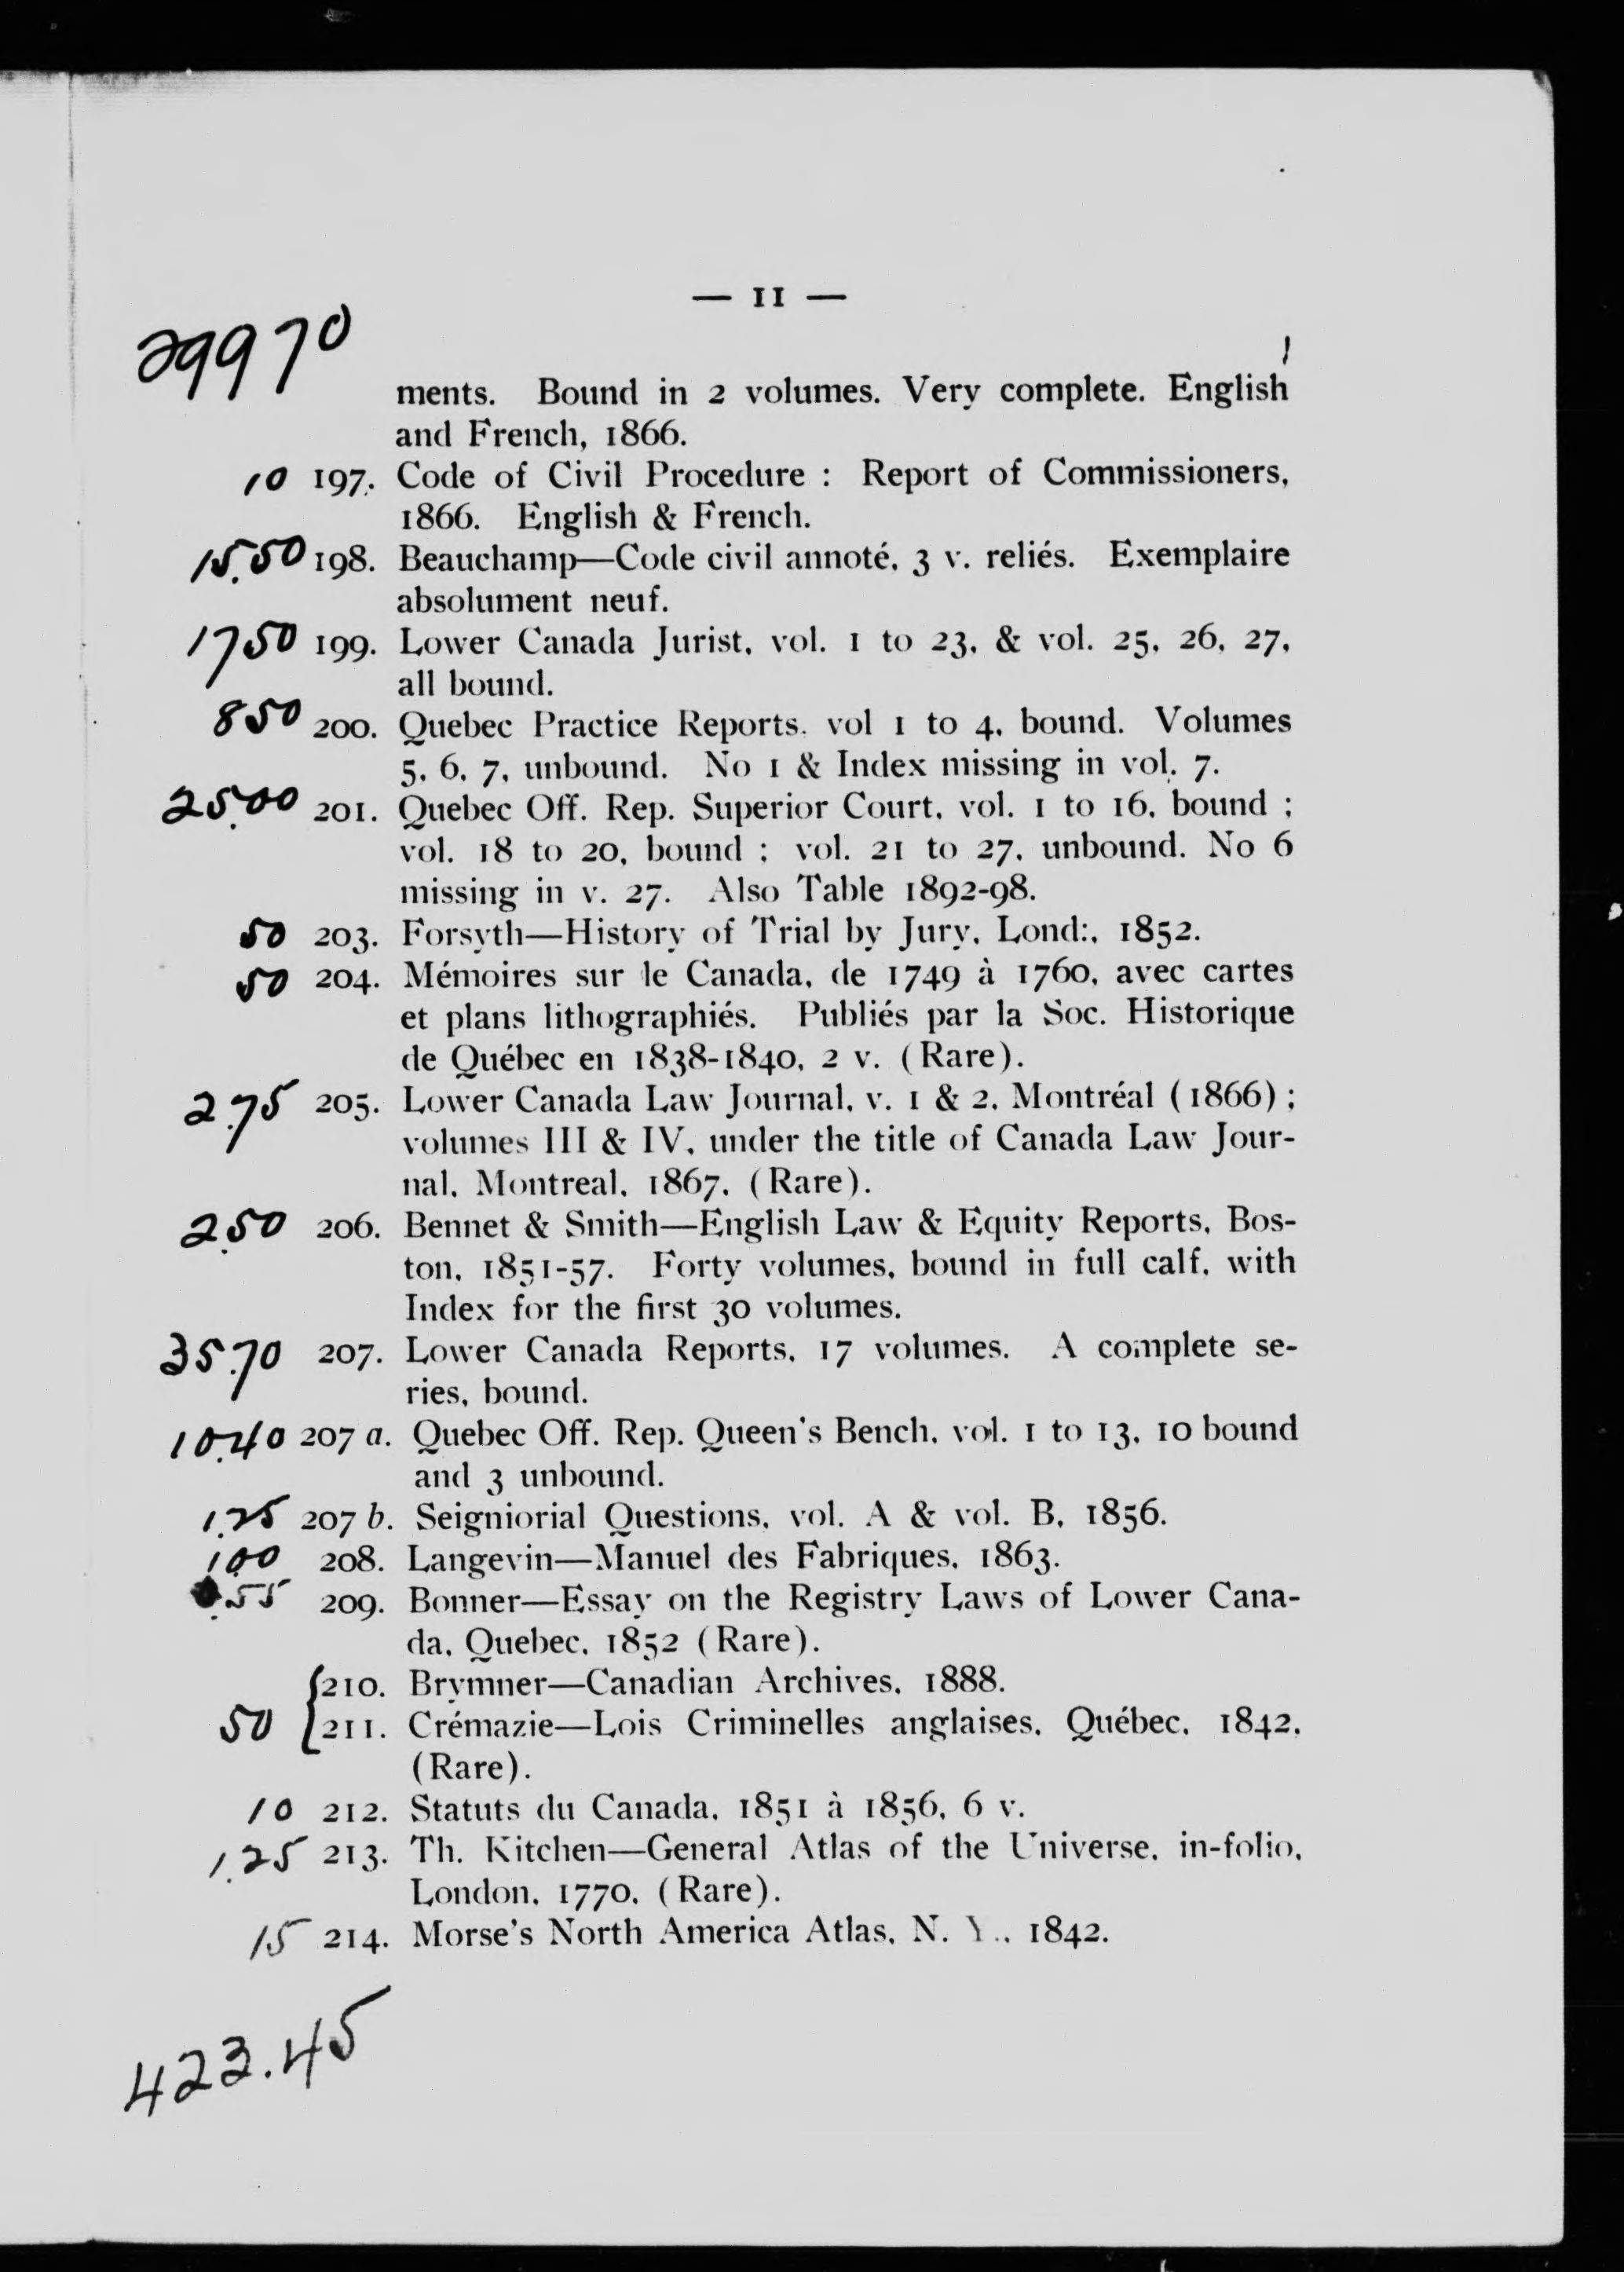 — 11 —
29970
ments. Bound in 2 volumes. Very complete. English
and French, 1866.
10 197. Code of Civil Procedure : Report of Commissioners,
1866. English & French.
15.50 198. Beauchamp—Code civil annoté, 3 v. reliés. Exemplaire
absolument neuf.
1750 199. Lower Canada Jurist, vol. 1 to 23, & vol. 25, 26, 27,
all bound.
850 200. Quebec Practice Reports, vol 1 to 4, bound. Volumes
5, 6, 7, unbound. No 1 & Index missing in vol. 7.
25.00 201. Quebec Off. Rep. Superior Court, vol. 1 to 16, bound ;
vol. 18 to 20, bound ; vol. 21 to 27, unbound. No 6
missing in v. 27. Also Table 1892-98.
50 203. Forsyth—History of Trial by Jury, Lond:, 1852.
50 204. Mémoires sur le Canada, de 1749 à 1760, avec cartes
et plans lithographiés. Publiés par la Soc. Historique
de Québec en 1838-1840, 2 v. (Rare).
2.75 205. Lower Canada Law Journal, v. 1 & 2, Montréal (1866) ;
volumes III & IV, under the title of Canada Law Jour-
nal, Montreal, 1867, (Rare).
2.50 206. Bennet & Smith—English Law & Equity Reports, Bos-
ton, 1851-57. Forty volumes, bound in full calf, with
Index for the first 30 volumes.
35.70 207. Lower Canada Reports, 17 volumes. A complete se-
ries, bound.
10.40 207 a. Quebec Off. Rep. Queen's Bench, vol. 1 to 13, 10 bound
and 3 unbound.
1.25 207 b. Seigniorial Questions, vol. A & vol. B, 1856.
1.00 208. Langevin—Manuel des Fabriques, 1863.
.55 209. Bonner—Essay on the Registry Laws of Lower Cana-
da, Quebec, 1852 (Rare).
210. Brymner—Canadian Archives, 1888.
50 { 211. Crémazie—Lois Criminelles anglaises, Québec, 1842,
(Rare).
10 212. Statuts du Canada, 1851 à 1856, 6 v.
1.25 213. Th. Kitchen—General Atlas of the Universe, in-folio,
London, 1770, (Rare).
15 214. Morse's North America Atlas, N. Y., 1842.
423.45